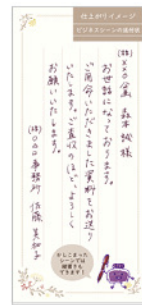 仕上がりイメージ
ビジネスシーンの使用例
(株)×××企画 森本誠様
お世話になっております。
ご用命いただきました資料をお送り
いたします。ご査収のほど、よろしく
お願いいたします。
(株)○△○事務所 佐藤美和子
かしこまった
シーンでは
縦書きも
できます!